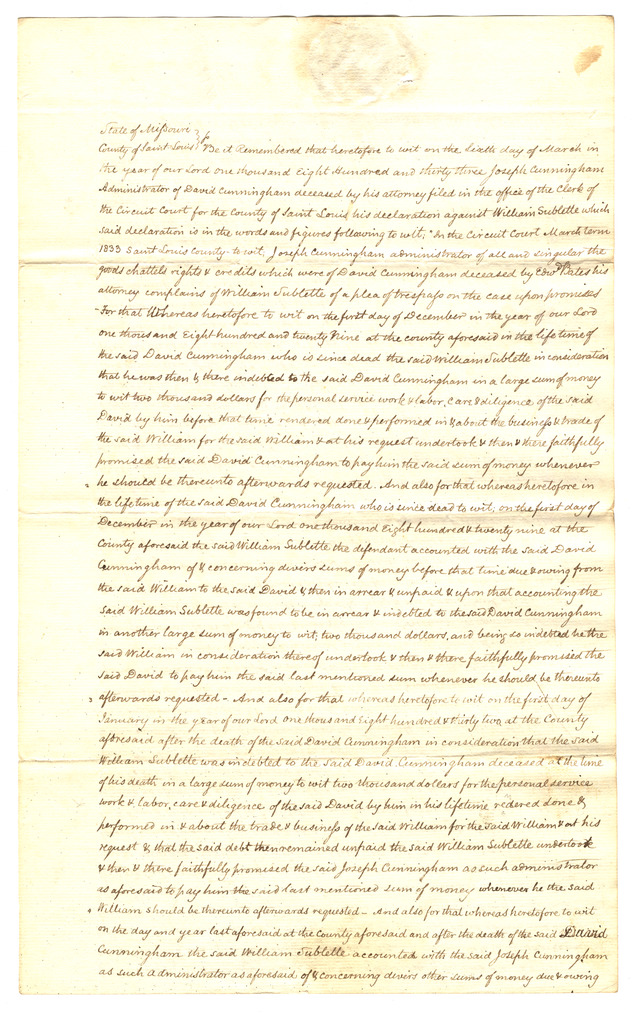 State of Missouri
County of Saint Louis Be it Remembered that heretofore to wit on the Sixth day of March in
the year of our Lord one thousand Eight Hundred and thirty three Joseph Cunningham
Administrator of David Cunningham deceased by his attorney filed in the office of the Clerk of
the Circuit Court for the County of Saint Louis his declaration against William Sublette which
said declaration is in the words and figures following to wit; "In the Circuit Court March term
1833 Saint Louis County to wit, Joseph Cunningham administrator of all and singular the
goods chattels rights & credits which were of David Cunningham deceased by Edwd Bates his
attorney complains of William Sublette of a plea of trespass on the case upon promises
For that Whereas heretofore to wit on the first day of December in the year of our Lord
one thousand Eight hundred and twenty Nine at the county aforesaid in the lifetime of
the said David Cunningham who is since dead the said William Sublette in consideration
that he was then & there indebted to the said David Cunningham in a large sum of money
to wit two thousand dollars for the personal service work & labor, care & diligence of the said
David by him before that time rendered done & performed in & about the business & trade of
the said William for the said William & at his request undertook & then & there faithfully
promised the said David Cunningham to pay him the said sum of money whenever
he should be thereunto afterwards requested. And also for that whereas heretofore in
the lifetime of the said David Cunningham who is since dead to wit; on the first day of
December in the year of our Lord one thousand Eight hundred & twenty nine at the
County aforesaid the said William Sublette the defendant accounted with the said David
Cunningham of & concerning divirs sums of money before that time due & owing from
the said William to the said David & then in arrear & unpaid & upon that accounting the
said William Sublette was found to be in arrear & indebted to the said David Cunningham
in another large sum of money to wit; two thousand dollars, and being so indebted he the
said William in consideration thereof undertook & then & there faithfully promised the
said David to pay him the said last mentioned sum whenever he should be thereunto
afterwards requested - And also for that whereas heretofore to wit on the first day of
January in the year of our Lord one thousand Eight hundred & thirty two, at the County
aforesaid after the death of the said David Cunningham in consideration that the said
William Sublette was indebted to the said David Cunningham deceased at the time
of his death in a large sum of money to wit two thousand dollars for the personal service
work & labor, care & diligence of the said David by him in his lifetime redered done &
performed in & about the trade & business of the said William for the said William & at his
request & that the said debt then remained unpaid the said William Sublette undertook
& then & there faithfully promised the said Joseph Cunningham as such administrator
as aforesaid to pay him the said last mentioned sum of money whenever he the said
William should be thereunto afterwards requested - And also for that whereas heretofore to wit
on the day and year last aforesaid at the County aforesaid and after the death of the said David
Cunningham the said William Sublette accounted with the said Joseph Cunningham
as such Administrator as aforesaid of & concerning divirs other sums of money due & owing